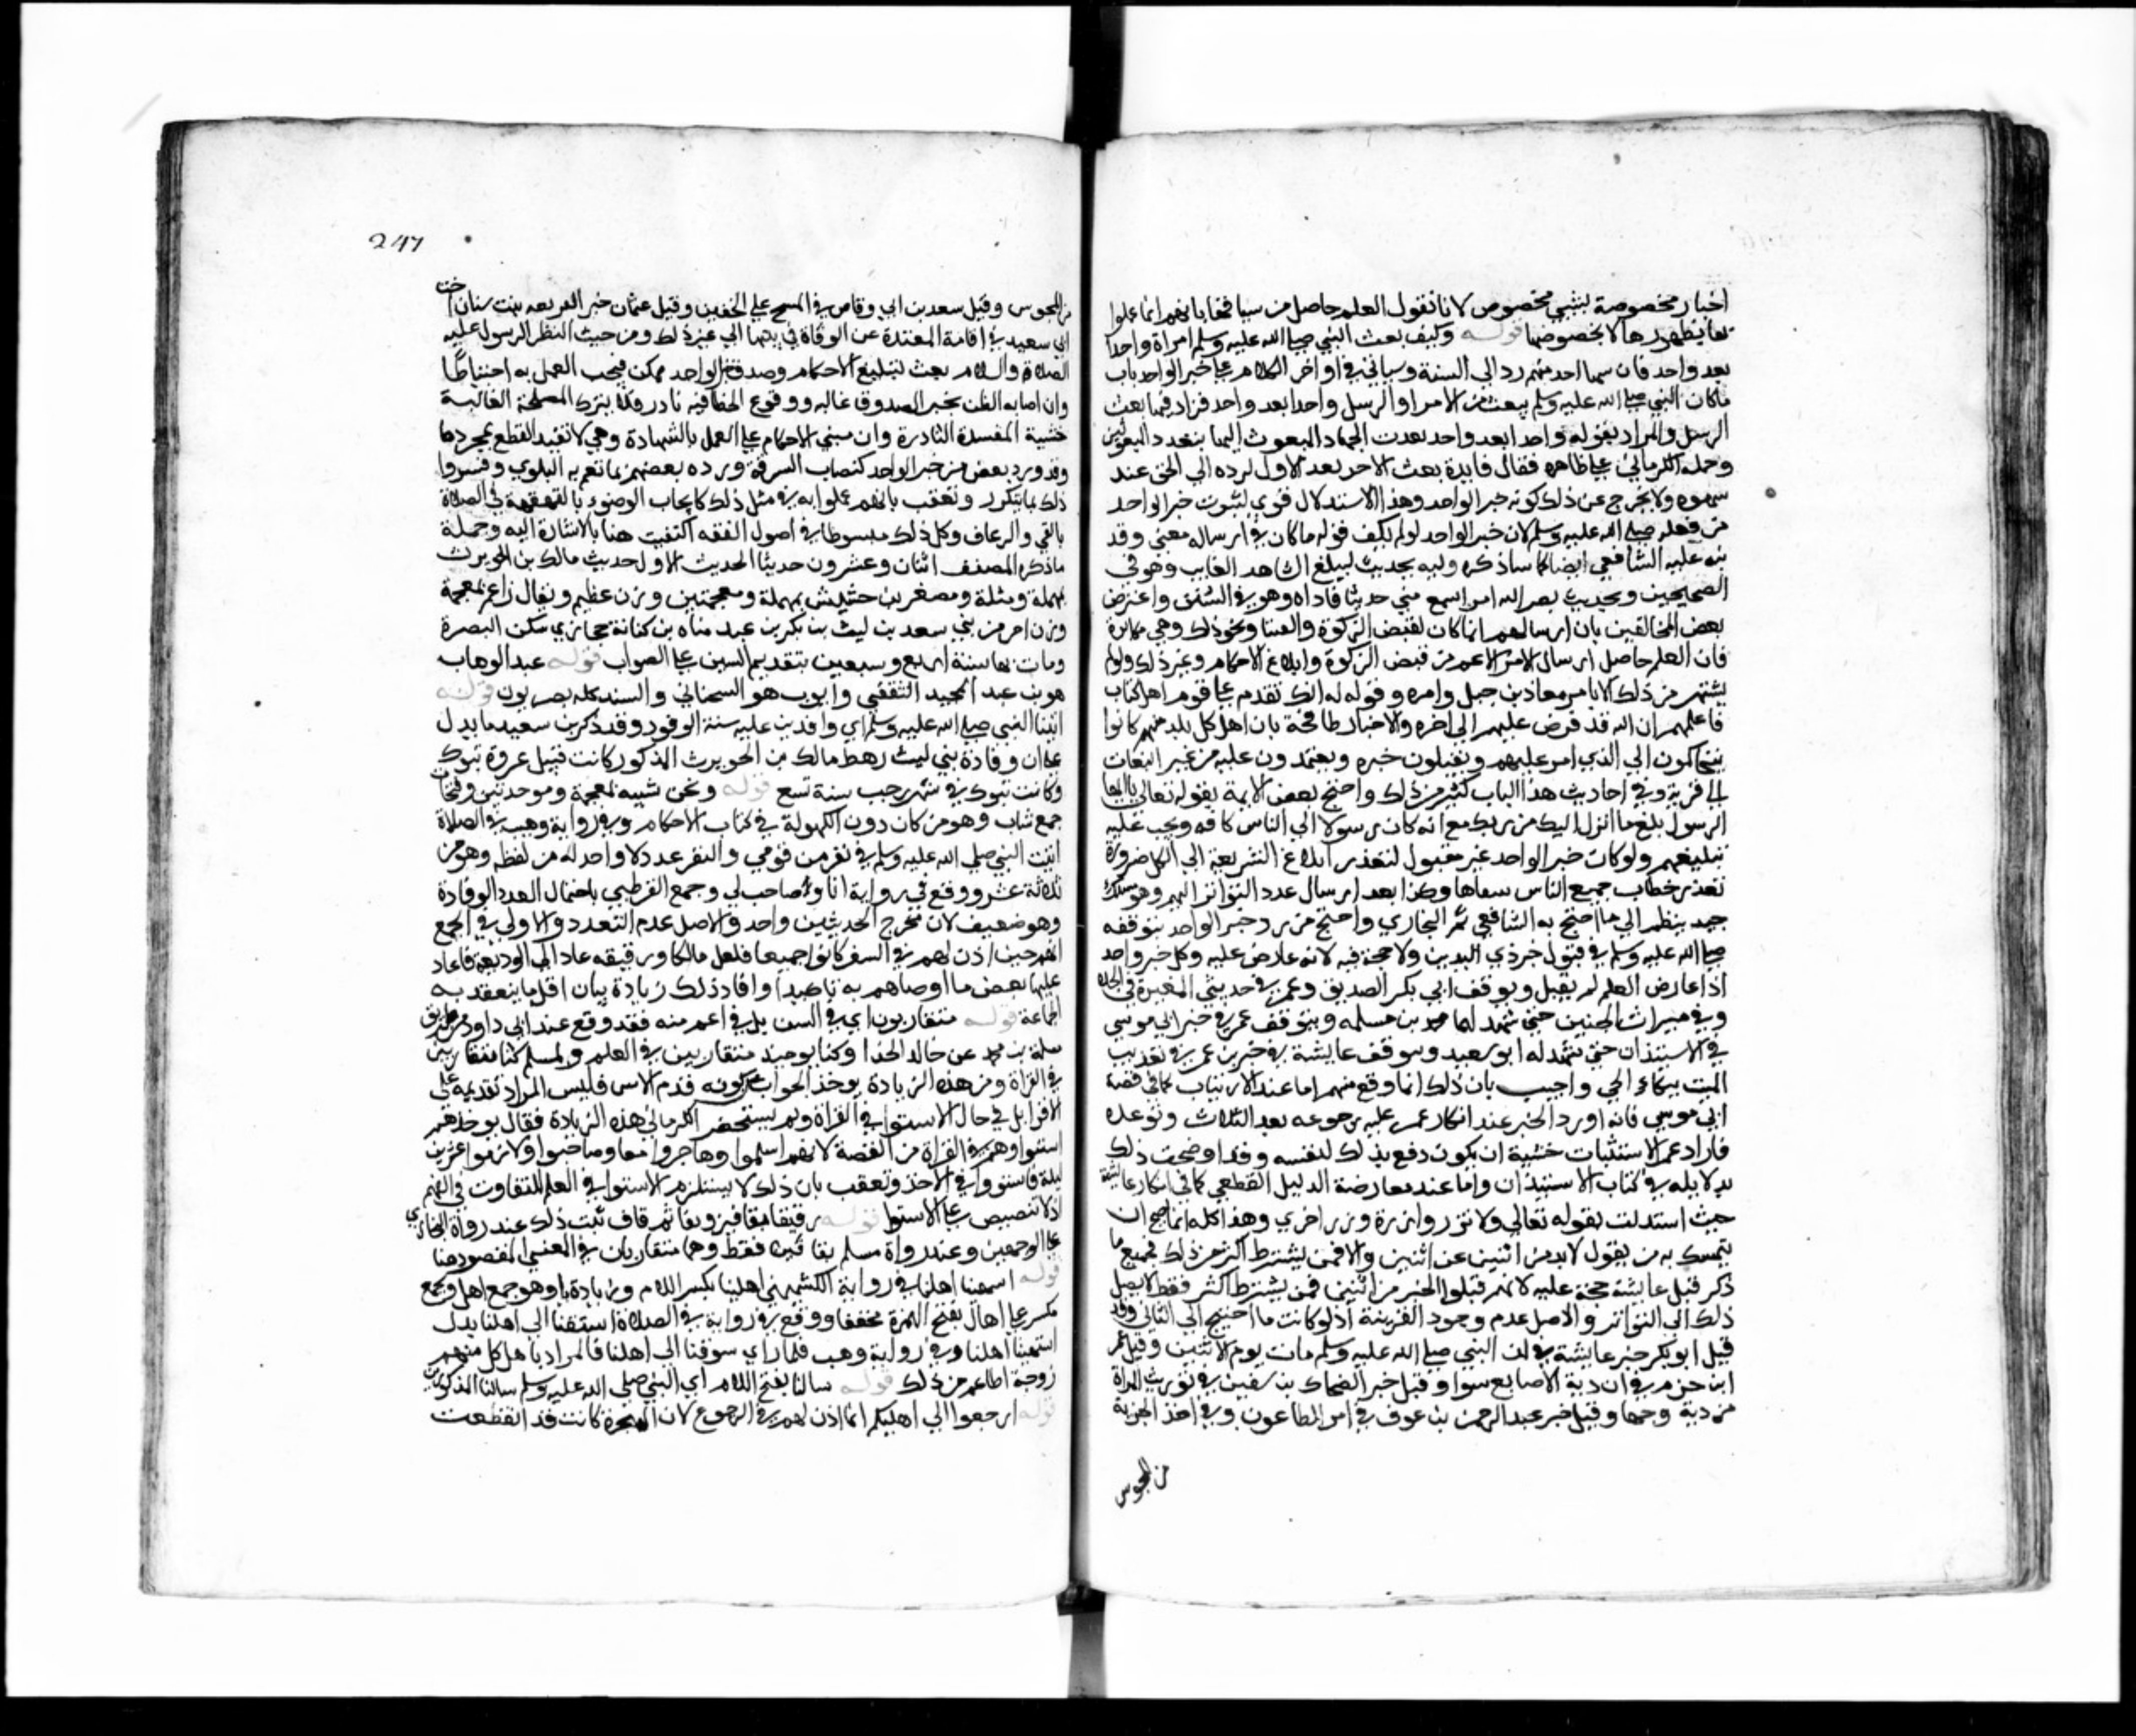 اخبار مخصوصة بشيي مخصوص لانا نقول العلم حاصل من سياقها بانهم انما عملوا
بها بظهورها لا بخصوصها قوله وكيف بعث النبي صلى الله عليه وسلم امراه واحدا
بعد واحد فان سها احد منهم رد الي السنة وسياتي في اواخر الكلام على خبر الواحد باب
ماكان النبي صلى الله عليه وسلم يبعث من الامرا والرسل واحدا بعد واحد فزاد فيه بعث
الرسل والمراد بقوله واحدا بعد واحد تعدد الجهات المبعوث اليها بتعدد المبعوثين
وحمله الكرماني على ظاهره فقال فايدة بعث الاخر بعد الاول لرده الي الحق عند
سهوه ولا يخرج عن ذلك كونه خبر الواحد وهذا الاستدلال قوي لثبوت خبر الواحد
من فعله صلى الله عليه وسلم لان خبر الواحد لو لم يكف قوله ماكان في ارساله معني وقد
نبه عليه الشافعي ايضا كما ساذكره وايده بحديث ليبلغ الشاهد الغايب وهو في
الصحيحين وبحديث نضر الله امرا سمع مني حديثا فاداه وهو في السنن واعترض
بعض المخالفين بان ارسالهم انما كان لقبض الزكوة والفتيا ونحو ذلك وهي مكابرة
فان العلم حاصل ارسال الامرا لاعم من قبض الزكوة وابلاغ الاحكام وغير ذلك ولو لم
يشتهر من ذلك الا تامير معاذ بن جبل وامره وقوله له انك تقدم على قوم اهل كتاب
فاعلمهم ان الله قد فرض عليهم الي اخره والاخبار طافحة بان اهل كل بلد منهم كانوا
يتحاكمون الي الذي امر عليهم ويقبلون خبره ويعتمدون عليه من غير التفات
الى قرينة وفي احاديث هذا الباب كثير من ذلك واحتج بعض الايمة بقوله تعالى يا ايها
الرسول بلغ ما انزل اليك من ربك مع انه كان رسولا الي الناس كافه ويجب عليه
تبليغهم ولو كان خبر الواحد غير مقبول لتعذر ابلاغ الشريعة الي الكل ضرورة
تعذر خطاب جميع الناس شفاها وكذا بعد ارسال عدد التواتر اليهم وهو مسلك
جيد ينظر الي ما احتج به الشافعي ثم البخاري واحتج من رد خبر الواحد بتوقفه
صلى الله عليه وسلم في قبول خبر ذي اليدين ولا حجة فيه لانه عارض عليه وكل خبر واحد
اذا عارض العلم لم يقبل وبوقف ابي بكر الصديق وعمر في حديثي المغيرة في الجده
وفي ميراث الجنين حتى شهد لهما محمد بن مسلمه وبتوقف عمر في خبر ابي موسى
في الاستئذان حتى شهد له ابو سعيد وبتوقف عايشة في خبر بن عمر في تعذيب
الميت ببكاء الحي واجيب بان ذلك انما وقع منهم اما عند الارتياب كما في قصة
ابي موسي فانه اورد الخبر عند انكار عمر عليه رجوعه بعد الثلاث وتوعده
فاراد عمر الاستثبات خشية ان يكون دفع بذلك لنفسه وقد اوضحت ذلك
بدلايله في كتاب الاستيذان واما عند معارضة الدليل القطعي كما في انكار عايشة
حيث استدلت بقوله تعالى ولا تزر وازرة وزر اخري وهذا كله انما يصح ان
يتمسك به من يقول لابد من اثنين عن اثنين والا فمن يشترط اكثر من ذلك فجميع ما
ذكر قبل عايشة حجة عليه لانهم قبلوا الخبر من اثنين فمن يشترط اكثر فقط لا يصل
ذلك الي التواتر والاصل عدم وجود القرينة اذ لو كانت ما احتيج الي الثاني وقد
قبل ابو بكر خبر عايشة في ان النبي صلى الله عليه وسلم مات يوم الاثنين وقبل عمر
ابن حزم في ان دية الاصابع سوا وقبل خبر الضحاك بن سفين في توريث المراة
من دية زوجها وقبل خبر عبد الرحمن بن عوف في امر الطاعون وفي اخذ الجزية
من المجوس
247
من المجوس وقبل سعد بن ابي وقاص في المسح على الخفين وقبل عثمان خبر الفريعه بنت سنان اخت
ابي سعيد في اقامة المعتدة عن الوفاة في بيتها الي غير ذلك ومن حيث النظر الرسول عليه
الصلاة والسلام بعث لتبليغ الاحكام وصدق خبر الواحد ممكن فيجب العمل به احتياطا
وان اصابه الظن بخبر الصدوق غالبه ووقوع الخطا فيه نادر فلا يترك المصلحة الغالبة
خشية المفسدة النادرة وان مبني الاحكام على العمل بالشهادة وهي لا تفيد القطع بمجردها
وقد ورد بعض من خبر الواحد كنصاب السرقة ورده بعضهم بما تعم به البلوي وفسروا
ذلك بما يتكرر وتعقب بانهم عملوا به في مثل ذلك كايجاب الوضوء بالقهقهة في الصلاة
بالقي والرعاف وكل ذلك مبسوطا في اصول الفقه اكتفيت هنا بالاشارة اليه وجملة
ماذكره المصنف اثنان وعشرون حديثا الحديث الاول حديث مالك بن الحويرث
بمهملة ومثلة ومصغر بن حشيش بمهملة ومعجمتين وزن عظيم ويقال زاعم بمعجمة
وزن احمر من بني سعد بن ليث بن بكر بن عبد مناه بن كنانة حجازي سكن البصرة
ومات بها سنة اربع وسبعين بتقديم السين على الصواب قوله عبد الوهاب
هو بن عبد المجيد الثقفي وايوب هو السختاني والسند كله بصريون قوله
اتينا النبي صلى الله عليه وسلم اي وافدين عليه سنة الوفود وقد ذكر بن سعيد ما يدل
على ان وفادة بني ليث رهط مالك بن الحويرث المذكور كانت قبيل غزوة تبوك
وكانت تبوك في شهر رجب سنة تسع قوله ونحن شببه بمعجمة وموحدتين وفتحات
جمع شاب وهو من كان دون الكهولة في كتاب الاحكام وفي رواية وهيب في الصلاة
اتيت النبي صلى الله عليه وسلم في نفر من قومي والنفر عدد لا واحد له من لفظه وهو من
ثلاثة عشر ووقع في رواية انا وصاحب لي وجمع القرطبي باحتمال تعدد الوفادة
وهو ضعيف لان مخرج الحديثين واحد والاصل عدم التعدد والاولى في الجمع
انهم حين اذن لهم في السفر كانوا جميعا فلعل مالكا ورفيقه عاد الي الوديعة فاعاد
عليهما بعض ما اوصاهم به تاكيدا وافاد ذلك زيادة بيان اقل ما ينعقد به
الجماعة قوله متقاربون اي في السن بل في اعم منه فقد وقع عند ابي داود من طريق
سلمة بن محمد عن خالد الحذا وكنا يومئذ متقاربين في العلم ولمسلم كنا متقاربين
في القراة ومن هذه الزيادة يوخذ الجواب كونه قدم الاسن فليس المراد تقديمه على
الاقرا بل في حال الاستوا في القراة ولم يستحضر الكرماني هذه الزيادة فقال يوخذ هم
استووا وهم في القراة من القصة لانهم اسلموا وهاجروا معا وصاحبوا ولازموا عشرين
ليلة فاستووا في الاخذ وتعقب بان ذلك لا يستلزم الاستوا في العلم للتفاوت في الفهم
اذ لا تنصيص على الاستوا قوله رقيقا بقافين وبفا ثم قاف ثبت ذلك عند رواة البخاري
على الوجهين وعند رواة مسلم بقافين فقط وهما متقاربان في المعني المقصود هنا
قوله اشتهينا اهلنا في رواية الكشميهني اهلينا بكسر اللام وزيادة يا وهو جمع اهل ويجمع
مكسر على اهال بفتح الهمزة مخففا ووقع في رواية في الصلاة اشتقنا الي اهلنا بدل
اشتهينا اهلنا وفي رواية وهب فلما راي شوقنا الي اهلنا فالمراد باهل كل منهم
زوجة اطاعم من ذلك قوله سالنا بفتح اللام اي النبي صلى الله عليه وسلم سالنا المذكورين
قوله ارجعوا الي اهليكم انما اذن لهم في الرجوع لان الهجرة كانت قد انقطعت